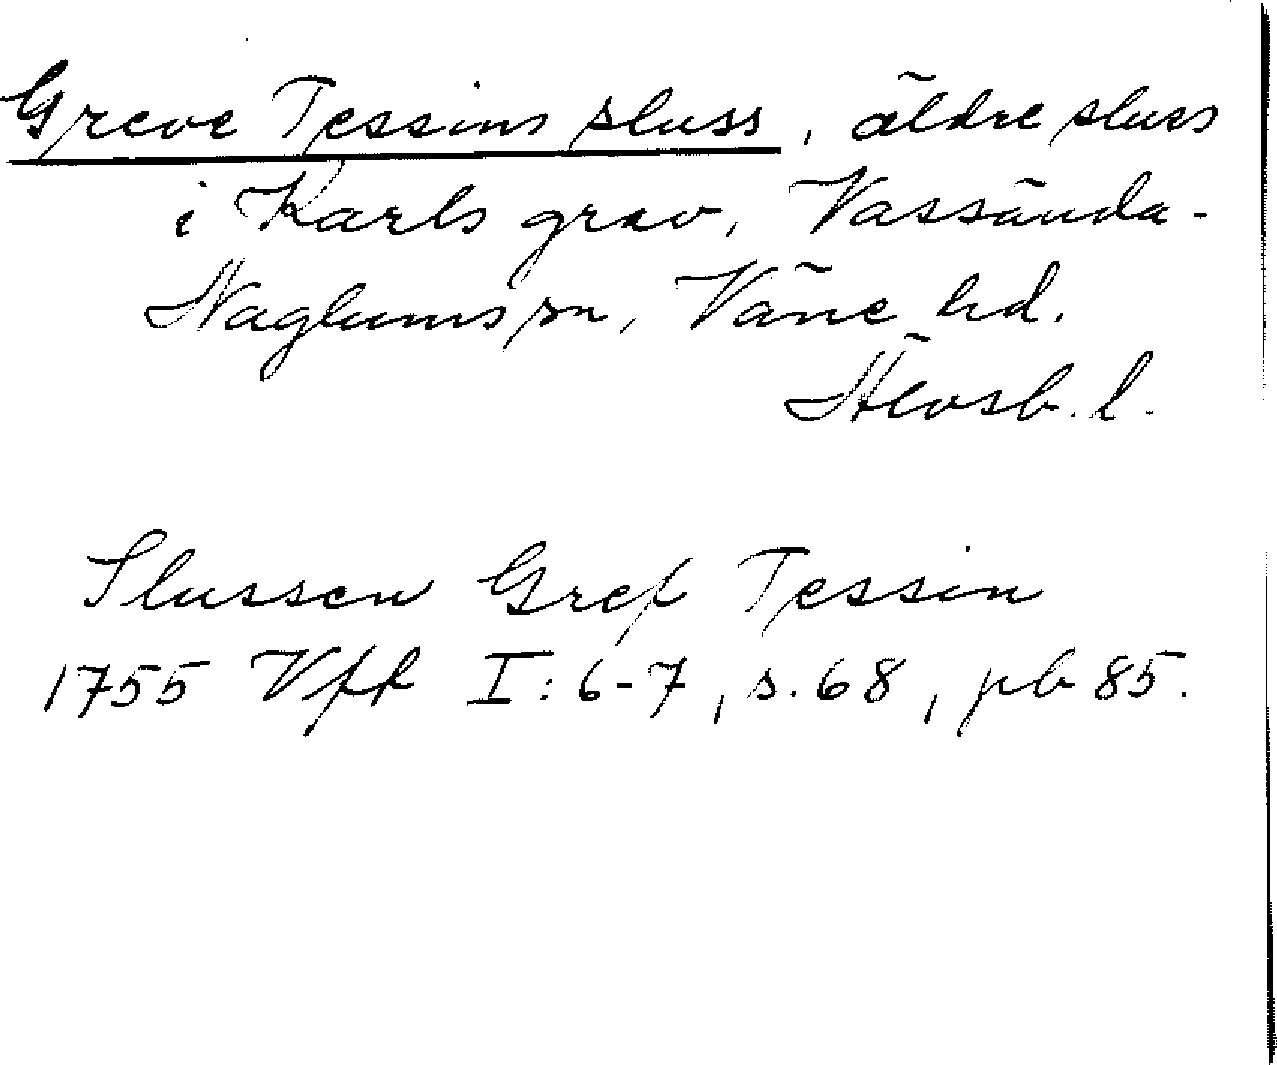 Greve Tessins sluss, äldre sluss
i Karls grav, Vassända-
Naglums sn, Väne hd.
Älvsb. l.
Slussen Gref Tessin
1755 Vff I: 6-7, s. 68, pb 85.